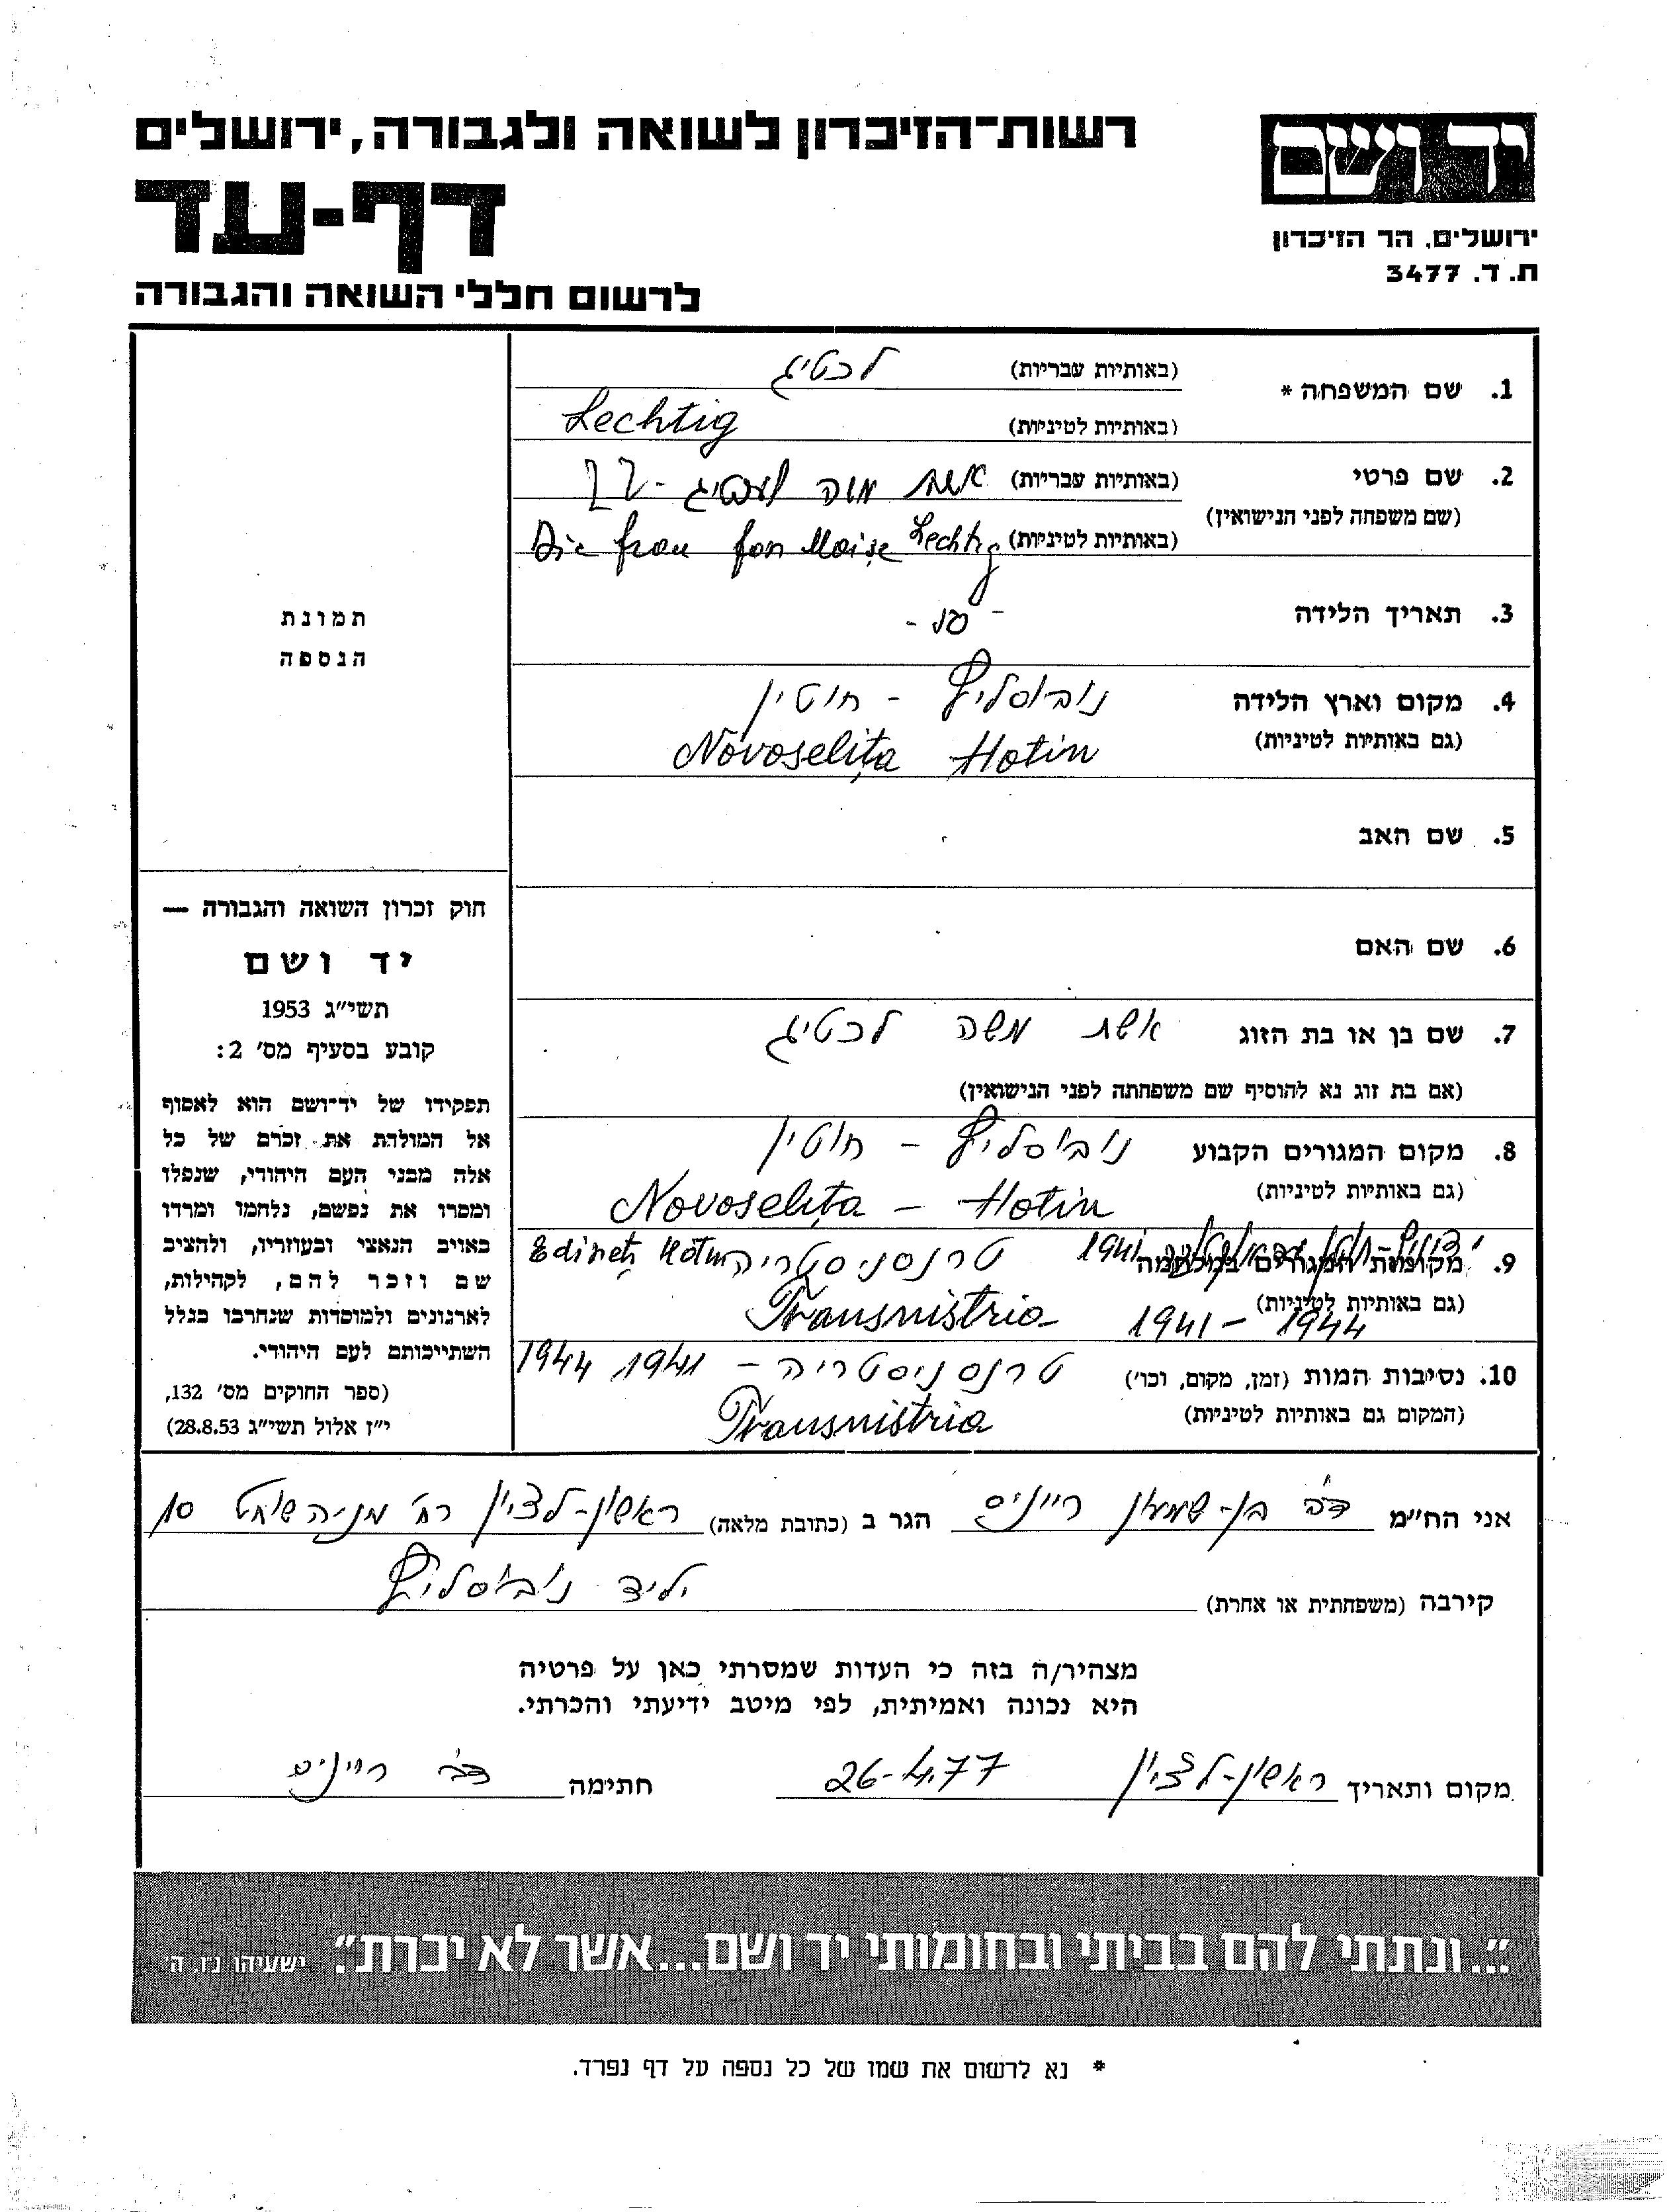 רשות־הזיכרון לשואה ולגבורה, ירושלים
דף-עד
לרשום חללי השואה והגבורה
יד ושם
ירושלים, הר הזיכרון
ת. ד. 3477
1. שם המשפחה *
(באותיות עבריות) לכטיג
(באותיות לטיניות) Lechtig
2. שם פרטי
(שם משפחה לפני הנישואין)
(באותיות עבריות) אשת משה לכטיג
(באותיות לטיניות) Die frau fon Moise Lechtig
3. תאריך הלידה - 50 -
4. מקום וארץ הלידה נובוסליץ - חוטין
(גם באותיות לטיניות) Novoselița Hotin
5. שם האב
6. שם האם
7. שם בן או בת הזוג אשת משה לכטיג
(אם בת זוג נא להוסיף שם משפחתה לפני הנישואין)
8. מקום המגורים הקבוע נובוסליץ - חוטין
(גם באותיות לטיניות) Novoselița - Hotin
9. מקומות המגורים במלחמה 1941 טרנסניסטריה Edineț Hotin
(גם באותיות לטיניות) 1941 - 1944 Transnistria
10. נסיבות המות (זמן, מקום, וכו') טרנסניסטריה - 1941 1944
(המקום גם באותיות לטיניות) Transnistria
תמונת
הנספה
חוק זכרון השואה והגבורה —
יד ושם
תשי״ג 1953
קובע בסעיף מס׳ 2:
תפקידו של יד־ושם הוא לאסוף
אל המולדת את זכרם של כל
אלה מבני העם היהודי, שנפלו
ומסרו את נפשם, נלחמו ומרדו
באויב הנאצי ובעוזריו, ולהציב
שם וזכר להם, לקהילות,
לארגונים ולמוסדות שנחרבו בגלל
השתייכותם לעם היהודי.
(ספר החוקים מס׳ 132,
י״ז אלול תשי״ג 28.8.53)
אני הח״מ דב בן-שמעון חיינים הגר ב (כתובת מלאה) ראשון-לציון רח׳ מניה שוחט 10
קירבה (משפחתית או אחרת) יליד נובוסליץ
מצהיר/ה בזה כי העדות שמסרתי כאן על פרטיה
היא נכונה ואמיתית, לפי מיטב ידיעתי והכרתי.
מקום ותאריך ראשון-לציון 26-4.77 חתימה דב חיינים
"...ונתתי להם בביתי ובחומותי יד ושם...אשר לא יכרת". ישעיהו נו, ה
* נא לרשום את שמו של כל נספה על דף נפרד.